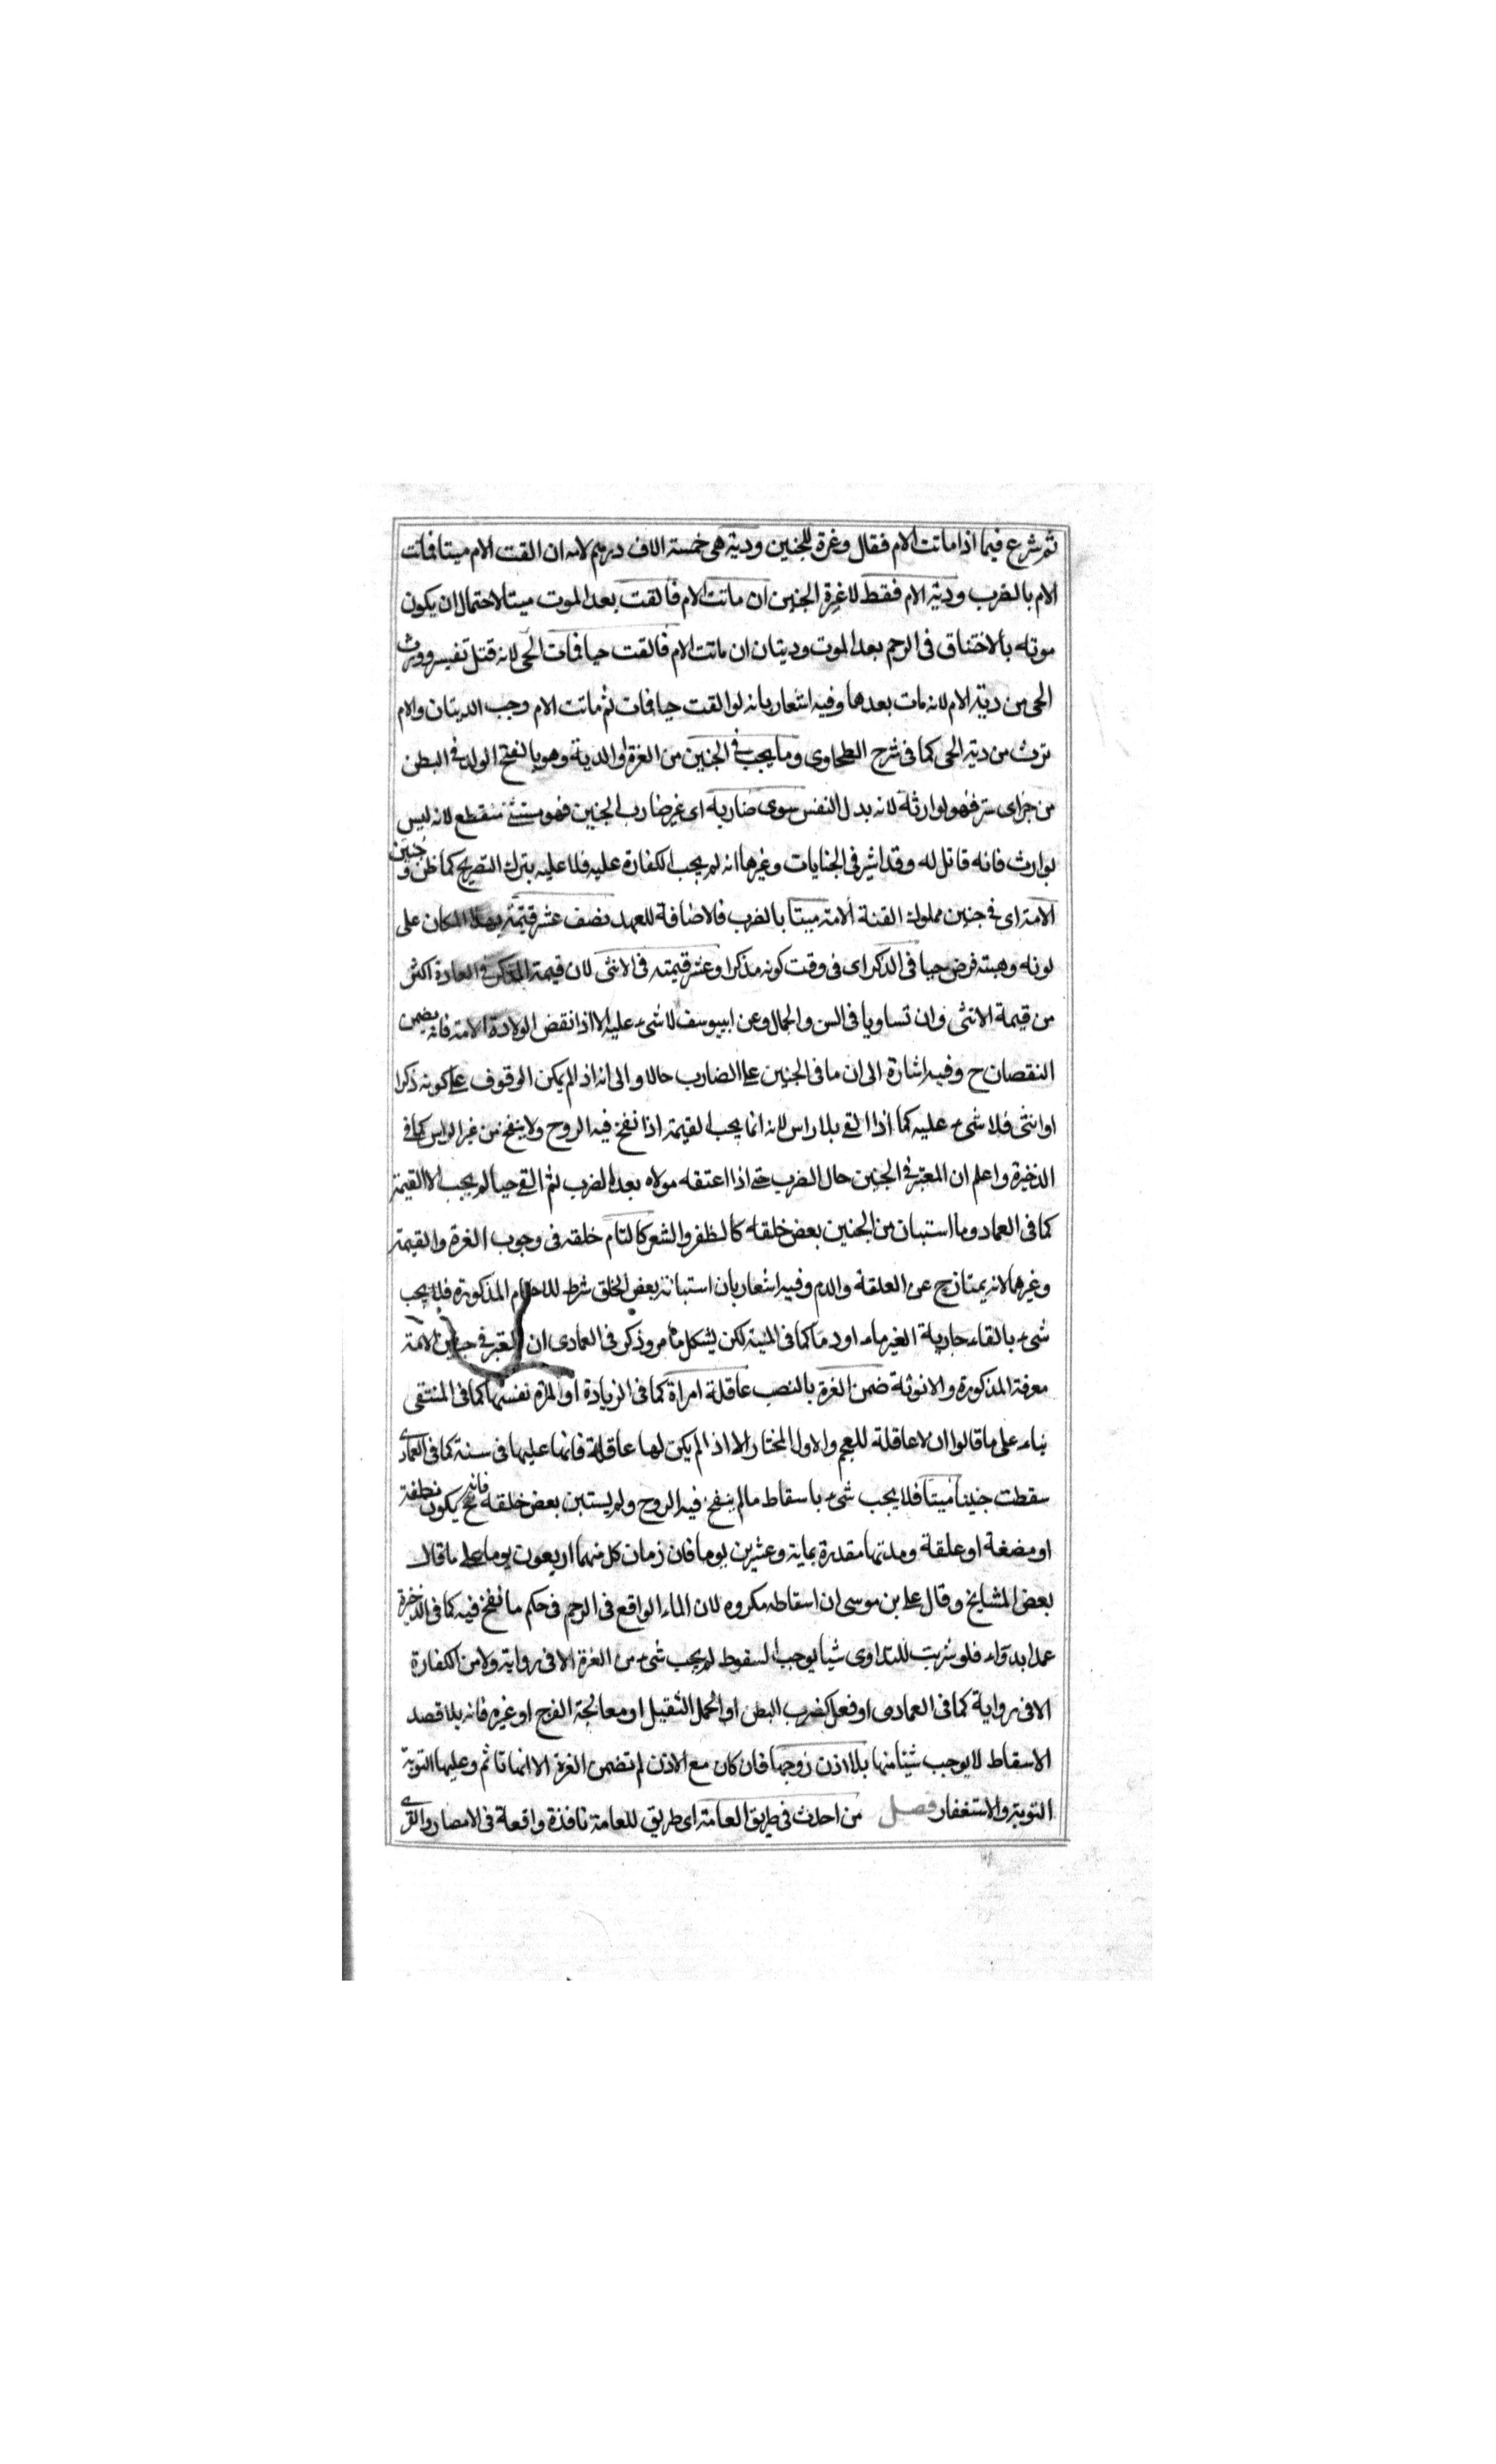 ثم شرع فيما اذا ماتت الام فقال وغرة للجنين ودية هى خمسة الاف درهم لامه ان القت الام ميتا فماتت
الام بالضرب ودية الام فقط لا غرة الجنين ان ماتت الام فالقت بعد الموت ميتا لاحتمال ان يكون
موته بالاختناق فى الرحم بعد الموت وديتان ان ماتت الام فالقت حيا فمات الحى لانه قتل نفسين وورث
الحى من دية الام لانه مات بعدها وفيه اشعار بانه لو القت حيا فمات ثم ماتت الام وجب الديتان والام
ترث من دية الحى كما فى شرح الطحاوى وما يجب فى الجنين من الغرة او الدية وهو بالفتح الولد فى البطن
من جن اى ستر فهو لوارثه لانه بدل النفس سوى ضاربه اى غير ضارب الجنين فهو مستثنى منقطع لانه ليس
بوارث فانه قاتل له وقد اشير فى الجنايات وغيرها انه لم يجب الكفارة عليه فلا عليه بترك التصريح كما ظن و جنين
الامة اى فى جنين مملوك القنة الامة ميتا بالضرب فالاضافة للعهد نصف عشر قيمته بهذا المكان على
لونه وهيئته فرض حيا فى الذكر اى فى وقت كونه مذكرا وعشر قيمته فى الانثى لان قيمة المذكر فى العادة اكثر
من قيمة الانثى وان تساويا فى السن والجمال وعن ابييوسف لا شىء عليه الا اذا نقض الولادة الامة فانه يضمن
النقصان ح وفيه اشارة الى ان ما فى الجنين على الضارب حالا والى انه اذا لم يمكن الوقوف على كونه ذكرا
او انثى فلا شىء عليه كما اذا القى بلا راس لانه انما يجب القيمة اذا نفخ فيه الروح ولا ينفخ من غير الراس كما فى
الذخيرة واعلم ان المعتبر فى الجنين حال الضرب حتى اذا اعتقه مولاه بعد الضرب ثم القى حيا لم يجب الا القيمة
كما فى العماد وما استبان من الجنين بعض خلقه كالظفر والشعر كالتام خلقه فى وجوب الغرة والقيمة
وغيرهما لانه يمتاز ح عن العلقة والدم وفيه اشعار بان استبانة بعض الخلق شرط للاحكام المذكورة فلا يجب
شىء بالقاء جارية الغير ماء او دما كما فى المنية لكن يشكل ما مر وذكر فى العمادى ان المعتبر فى جنين الامة
معرفة المذكورة والانوثة ضمن الغرة بالنصب عاقلة امراة كما فى الزيادة او المرة نفسها كما فى المنتقى
بناء على ما قالوا ان لا عاقلة للعجم والاول المختار الا اذا لم يكن لها عاقلة فانها عليها فى سنة كما فى العمادى
سقطت جنينا ميتا فلا يجب شىء باسقاط ما لم ينفخ فيه الروح ولم يستبن بعض خلقه فانه ح يكون نطفة
او مضغة او علقة ومدتها مقدرة بماية وعشرين يوما فان زمان كل منهما اربعون يوما على ما قال
بعض المشايخ وقال على بن موسى ان اسقاطه مكروه لان الماء الواقع فى الرحم فى حكم ما نفخ فيه كما فى الذخيرة
عمدا بدواء فلو شربت للتداوى شيا يوجب السقوط لم يجب شىء من الغرة الا فى رواية ولا من الكفارة
الا فى رواية كما فى العمادى او فعل كضرب البطن او الحمل الثقيل او معالجة الفرج او غيره فانه بلا قصد
الاسقاط لا يوجب شيئا منها بلا اذن زوجها فان كان مع الاذن لم تضمن الغرة الا انها تاثم وعليها التوبة
التوبة والاستغفار فصل من احدث فى طريق العامة اى طريق للعامة نافذة واقعة فى الامصار والقرى